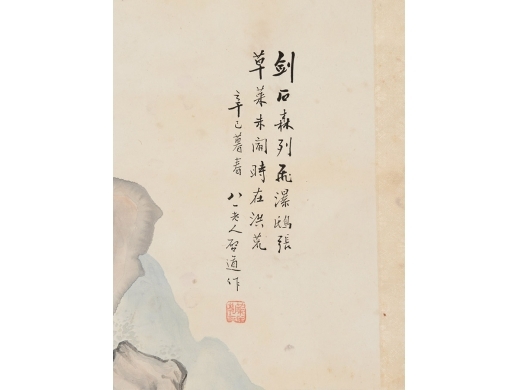 剑石森列飛瀑鴟張
草萊未闢時在洪荒
辛巳暮春
八一老人啓道作